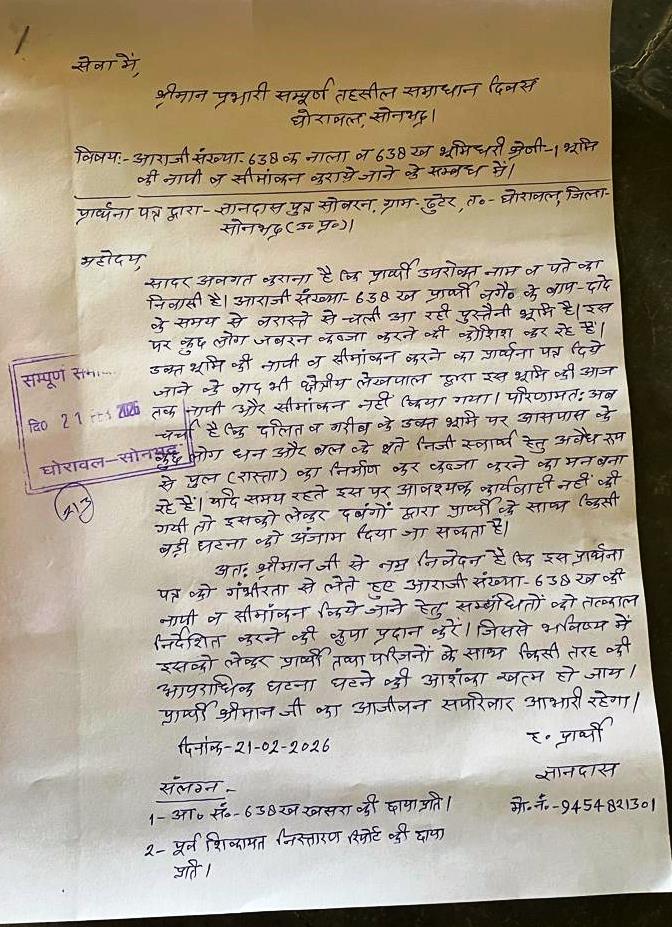 सेवा में,
श्रीमान प्रभारी सम्पूर्ण तहसील समाधान दिवस
घोरावल, सोनभद्र।
विषय:- आराजी संख्या- 638 क नाला व 638 ख भूमिधरी श्रेणी-1 भूमि
की नापी व सीमांकन कराये जाने के सम्बंध में।
प्रार्थना पत्र द्वारा- ज्ञानदास पुत्र सोबरन, ग्राम- डुटेर, त०- घोरावल, जिला-
सोनभद्र (उ० प्र०)।
महोदय,
सादर अवगत कराना है कि प्रार्थी उपरोक्त नाम व पते का
निवासी है। आराजी संख्या- 638 ख प्रार्थी वगै० के बाप-दादे
के समय से वरास्ते से चली आ रही पुस्तैनी भूमि है। इस
पर कुछ लोग जबरन कब्जा करने की कोशिश कर रहे हैं।
उक्त भूमि की नापी व सीमांकन करने का प्रार्थना पत्र दिये
जाने के बाद भी क्षेत्रीय लेखपाल द्वारा इस भूमि की आज
तक नापी और सीमांकन नहीं किया गया। परिणामत: अब
चर्चा है कि दलित व गरीब के उक्त भूमि पर आसपास के
कुछ लोग धन और बल के बूते निजी स्वार्थ हेतु अवैध रूप
से पुल (रास्ता) का निर्माण कर कब्जा करने का मन बना
रहे हैं। यदि समय रहते इस पर आवश्यक कार्यवाही नहीं की
गयी तो इसको लेकर दबंगों द्वारा प्रार्थी के साथ किसी
बड़ी घटना को अंजाम दिया जा सकता है।
अत: श्रीमान जी से नम्र निवेदन है कि इस प्रार्थना
पत्र को गंभीरता से लेते हुए आराजी संख्या- 638 ख की
नापी व सीमांकन किये जाने हेतु सम्बंधितों को तत्काल
निर्देशित करने की कृपा प्रदान करें। जिससे भविष्य में
इसको लेकर प्रार्थी तथा परिजनों के साथ किसी तरह की
आपराधिक घटना घटने की आशंका खत्म हो जाय।
प्रार्थी श्रीमान जी का आजीवन सपरिवार आभारी रहेगा।
दिनांक- 21-02-2026
ह. प्रार्थी
ज्ञानदास
मो. नं.- 9454821301
संलग्न -
1- आ० सं०- 638 ख खसरा की छाया प्रति।
2- पूर्व शिकायत निस्तारण रिपोर्ट की छाया
प्रति।
सम्पूर्ण
दि० 21 FEB 2026
घोरावल-सोनभद्र